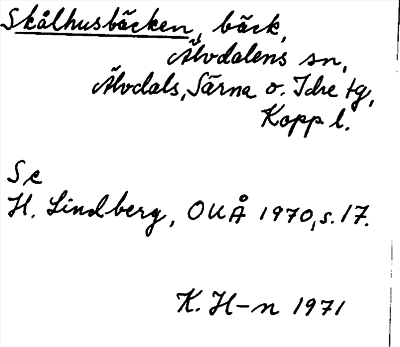 Skålhusbäcken, bäck,
Älvdalens sn,
Älvdals, Särna o. Idre tg,
Kopp l.
Se
H. Lindberg, OUÅ 1970, s. 17.
K. H-n 1971